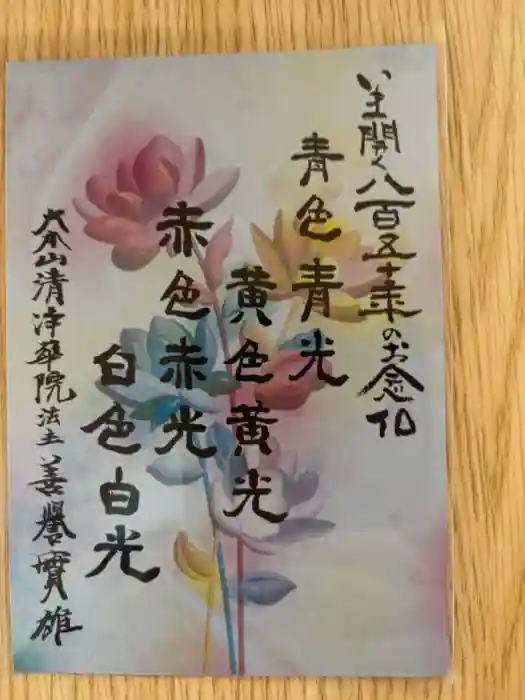 いま開く八百五十年のお念仏
青色青光
黄色黄光
赤色赤光
白色白光
大本山清浄華院法主善譽寶雄